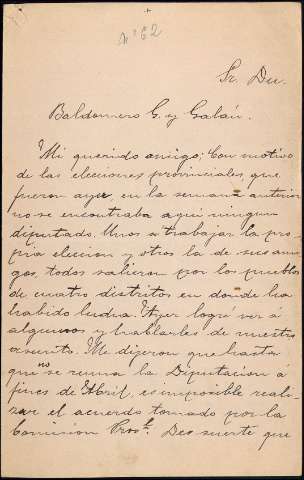 Nº 62
Sr. Dn.
Baldomero G. y Galán.
Mi querido amigo; Con motivo
de las elecciones provinciales, que
fueron ayer, en la semana anterior
no se encontraba aquí ningun
diputado. Unos a trabajar la pro-
pia eleccion y otros la de sus ami-
gos, todos salieron por los pueblos
de cuatro distritos en donde ha
habido lucha. Ayer logré ver á
algunos y hablarles de nuestro
asunto. Me dijeron que hasta
que no se reuna la Diputacion á
fines de Abril, es imposible reali-
zar el acuerdo tomado por la
Comision Provl. De suerte que